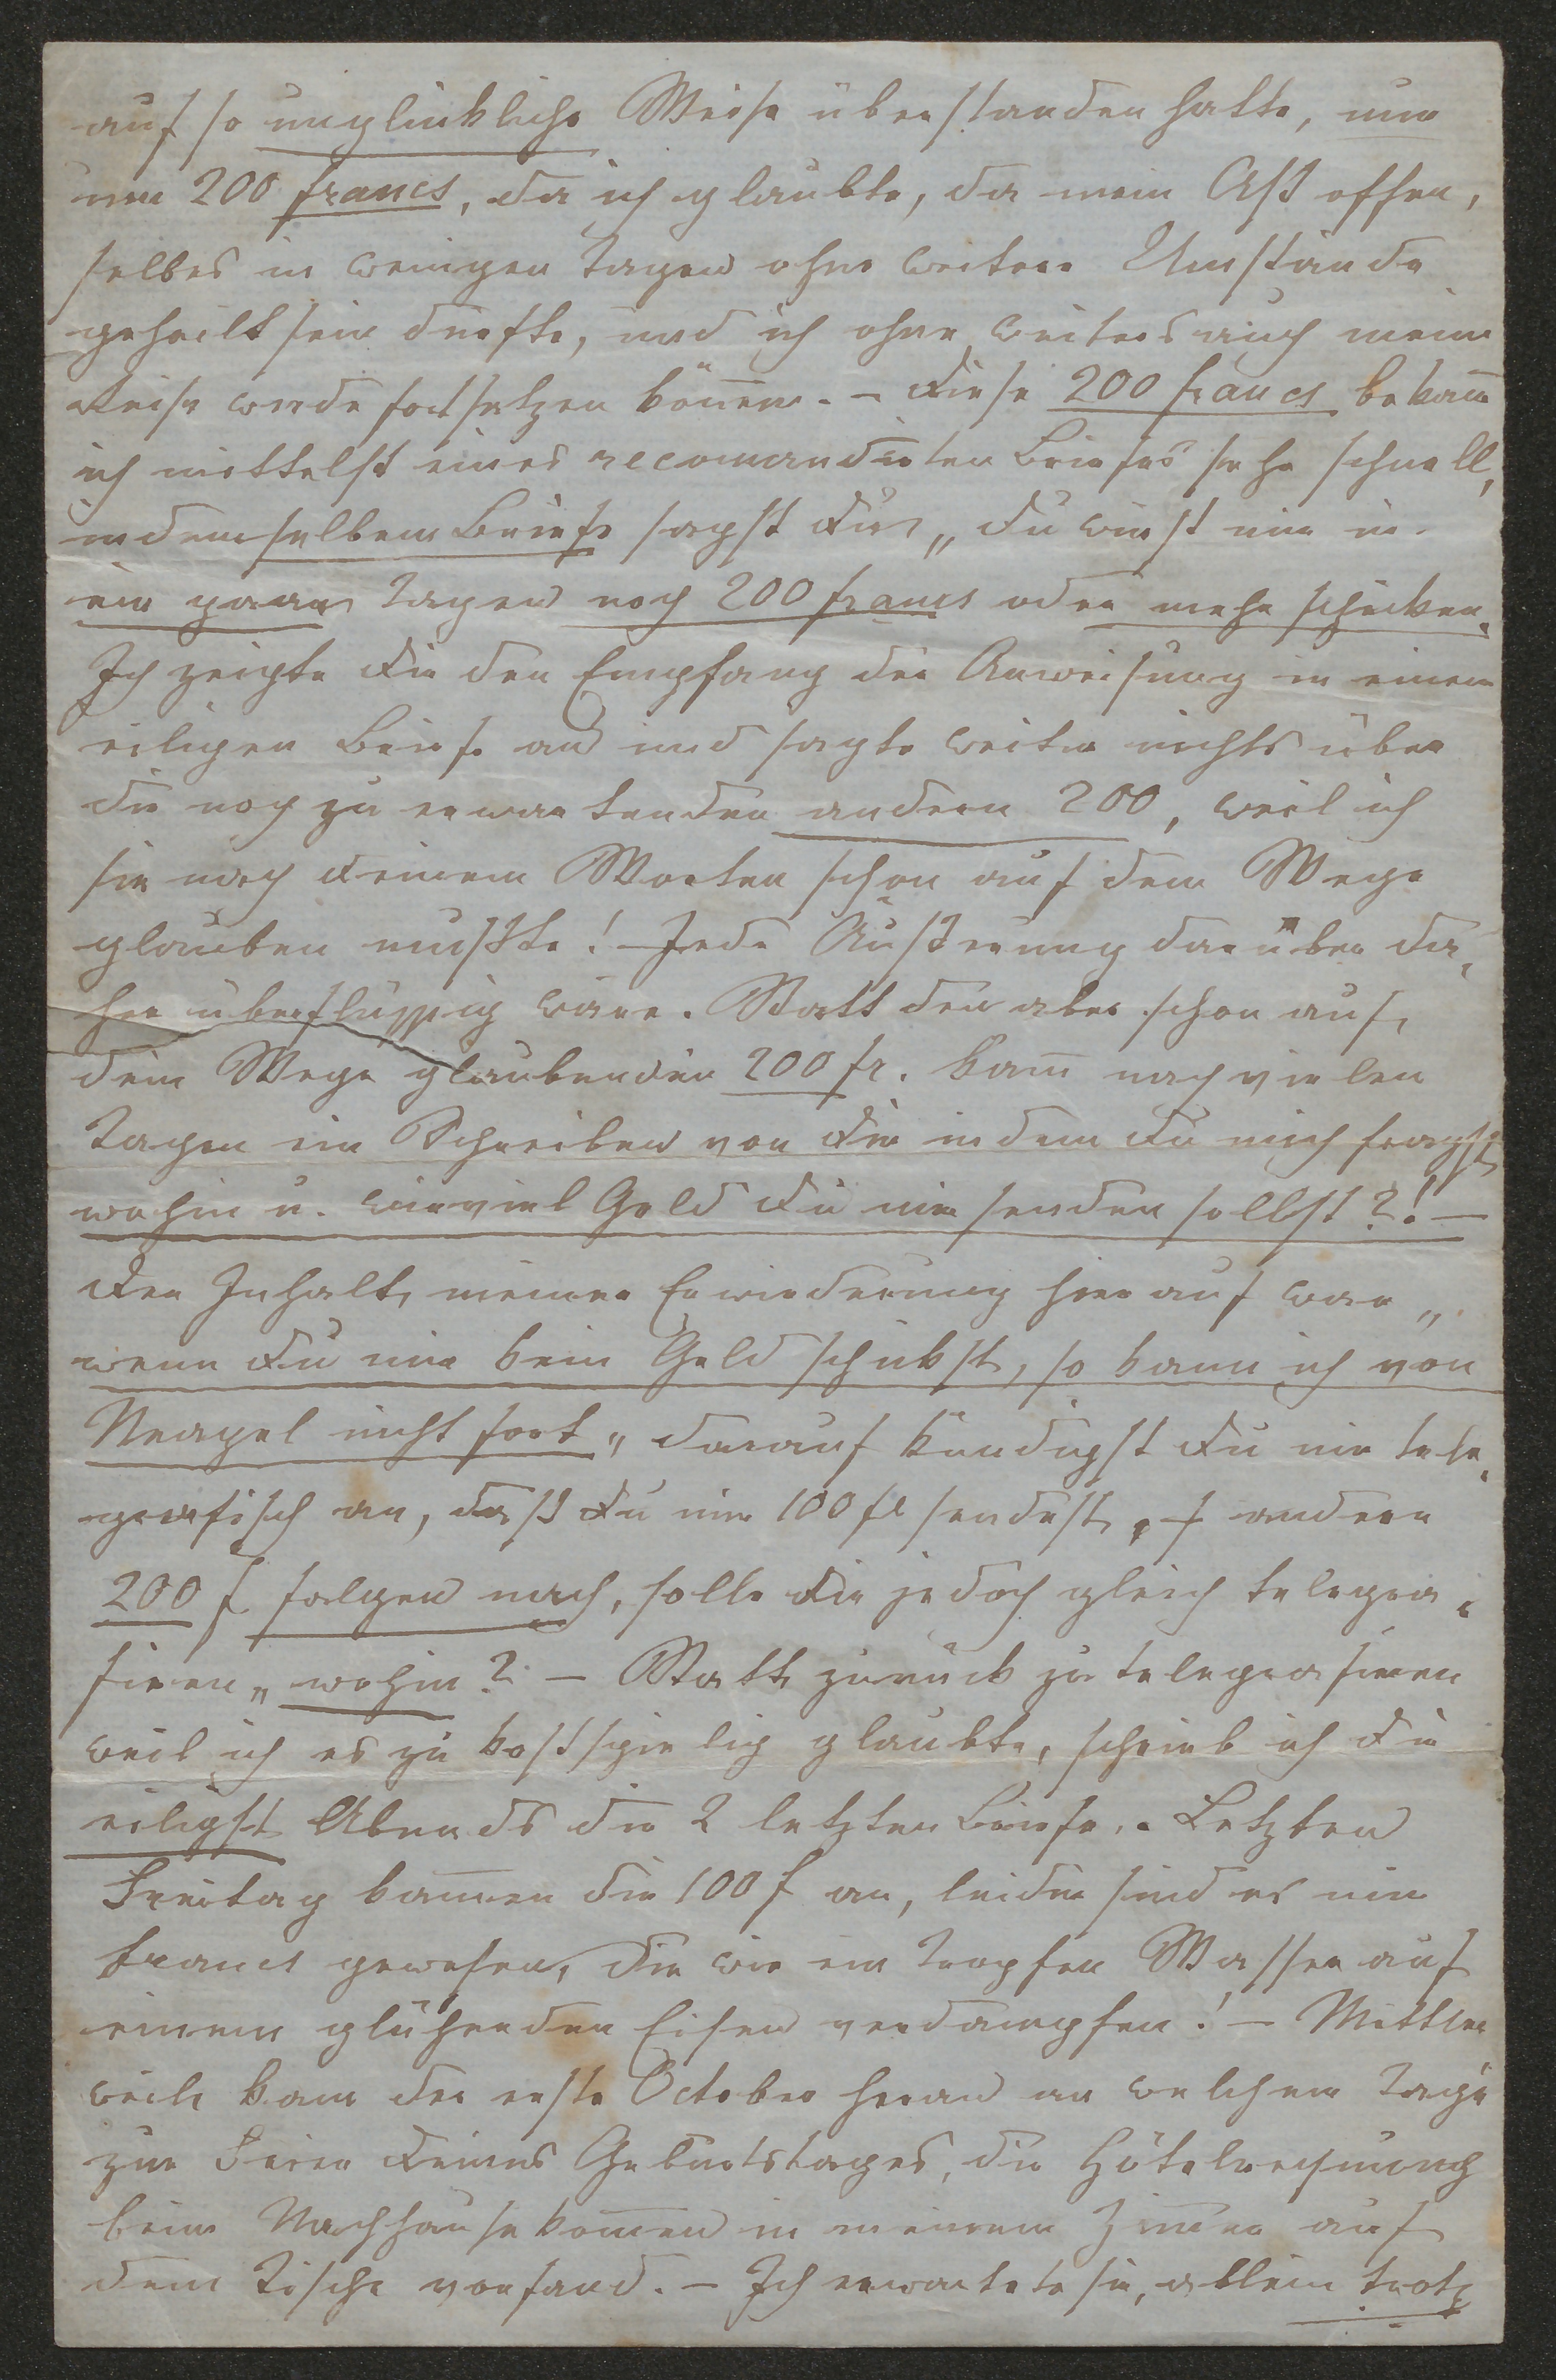 auf so unglückliche Weise überstanden hatte, nur
um 200 francs, da ich glaubte, da mein Ast offen,
selbes in wenigen Tagen ohne weitere Umstände
geheilt sein dürfte, und ich ohne weiters auch meine
Reise werde fortsetzen können. – Diese 200 francs bekam̅
ich mittelst eines recomandirten Briefes sehr schnell,
in demselben Briefe sagst Du „ Du wirst mir in
ein paar Tagen noch 200 francs oder mehr schicken.
Ich zeigte Dir den Empfang der Anweisung in einem
eiligen Briefe an und sagte weiter nichts über
die noch zu erwartenden andern 200, weil ich
sie nach Deinem Worten schon auf dem Wege
glauben mußte! Jede Äußerung darüber da,
her überflüssig wäre. Statt den aber schon auf
dem Wege glaubenden 200 fr. kam̅ nach vielen
Tagen ein Schreiben von Dir in dem Du mich fragst
wohin u. wieviel Geld Du mir senden sollst?! –
Der Inhalt, meiner Erwiederung hierauf war „
wenn Du mir kein Geld schickst, so kann ich von
Neapel nicht fort „ darauf kündigst Du mir tele,
grafisch an, daß Du mir 100 fl sendest, f andere
200 f folgen nach, solle Dir jedoch gleich telegra,
firen „ wohin? – Statt zurück zu telegrafiren
weil ich es zu kostspielig glaubte, schrieb ich Dir
eiligst Abends die 2 letzten Briefe. Letzten
Freitag kam̅en die 100 f an, leider sind es nur
francs gewesen, die wie ein Tropfen Wasser auf
einem glühenden Eisen verdampfen! – Mittler
weile kam der erste October heran an welchem Tage
zur Feier Deines Geburtstages, die Hôtelrechnung
beim Nachhausekom̅en in meinem Zim̅er auf
dem Tische vorfand. – Ich erwartete sie, allein trotz